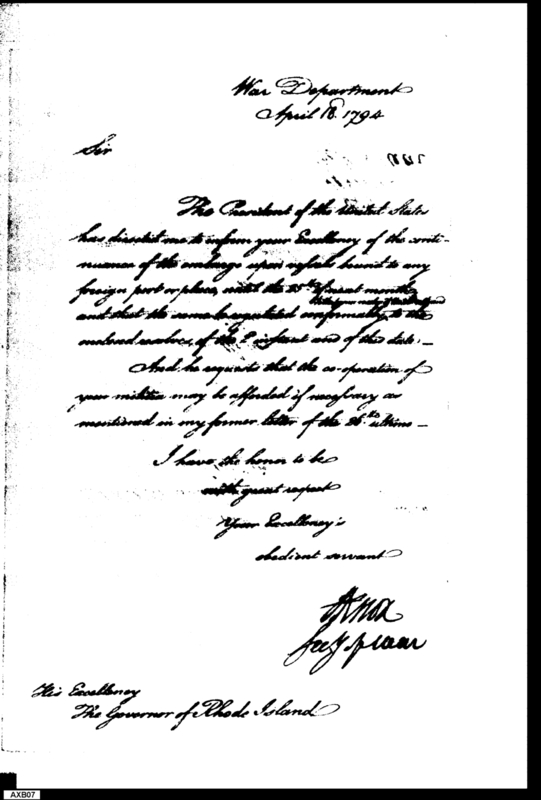 War Department
April 18. 1794
Sir
The President of the United States
has directed me to inform your Excellency of the conti-
nuance of the embargo upon vessels bound to any
foreign port or place, until the 25th of next month
and that the same be regulated conformably to the
enclosed resolves, of the 2d instant and of this date. —
And he requests that the co-operation of
your militia may be afforded if necessary as
mentioned in my former letter of the 26th ultimo —
I have the honor to be
with great respect
Your Excellency's
obedient servant
H Knox
Secy of war
His Excellency
The Governor of Rhode Island
AXB07